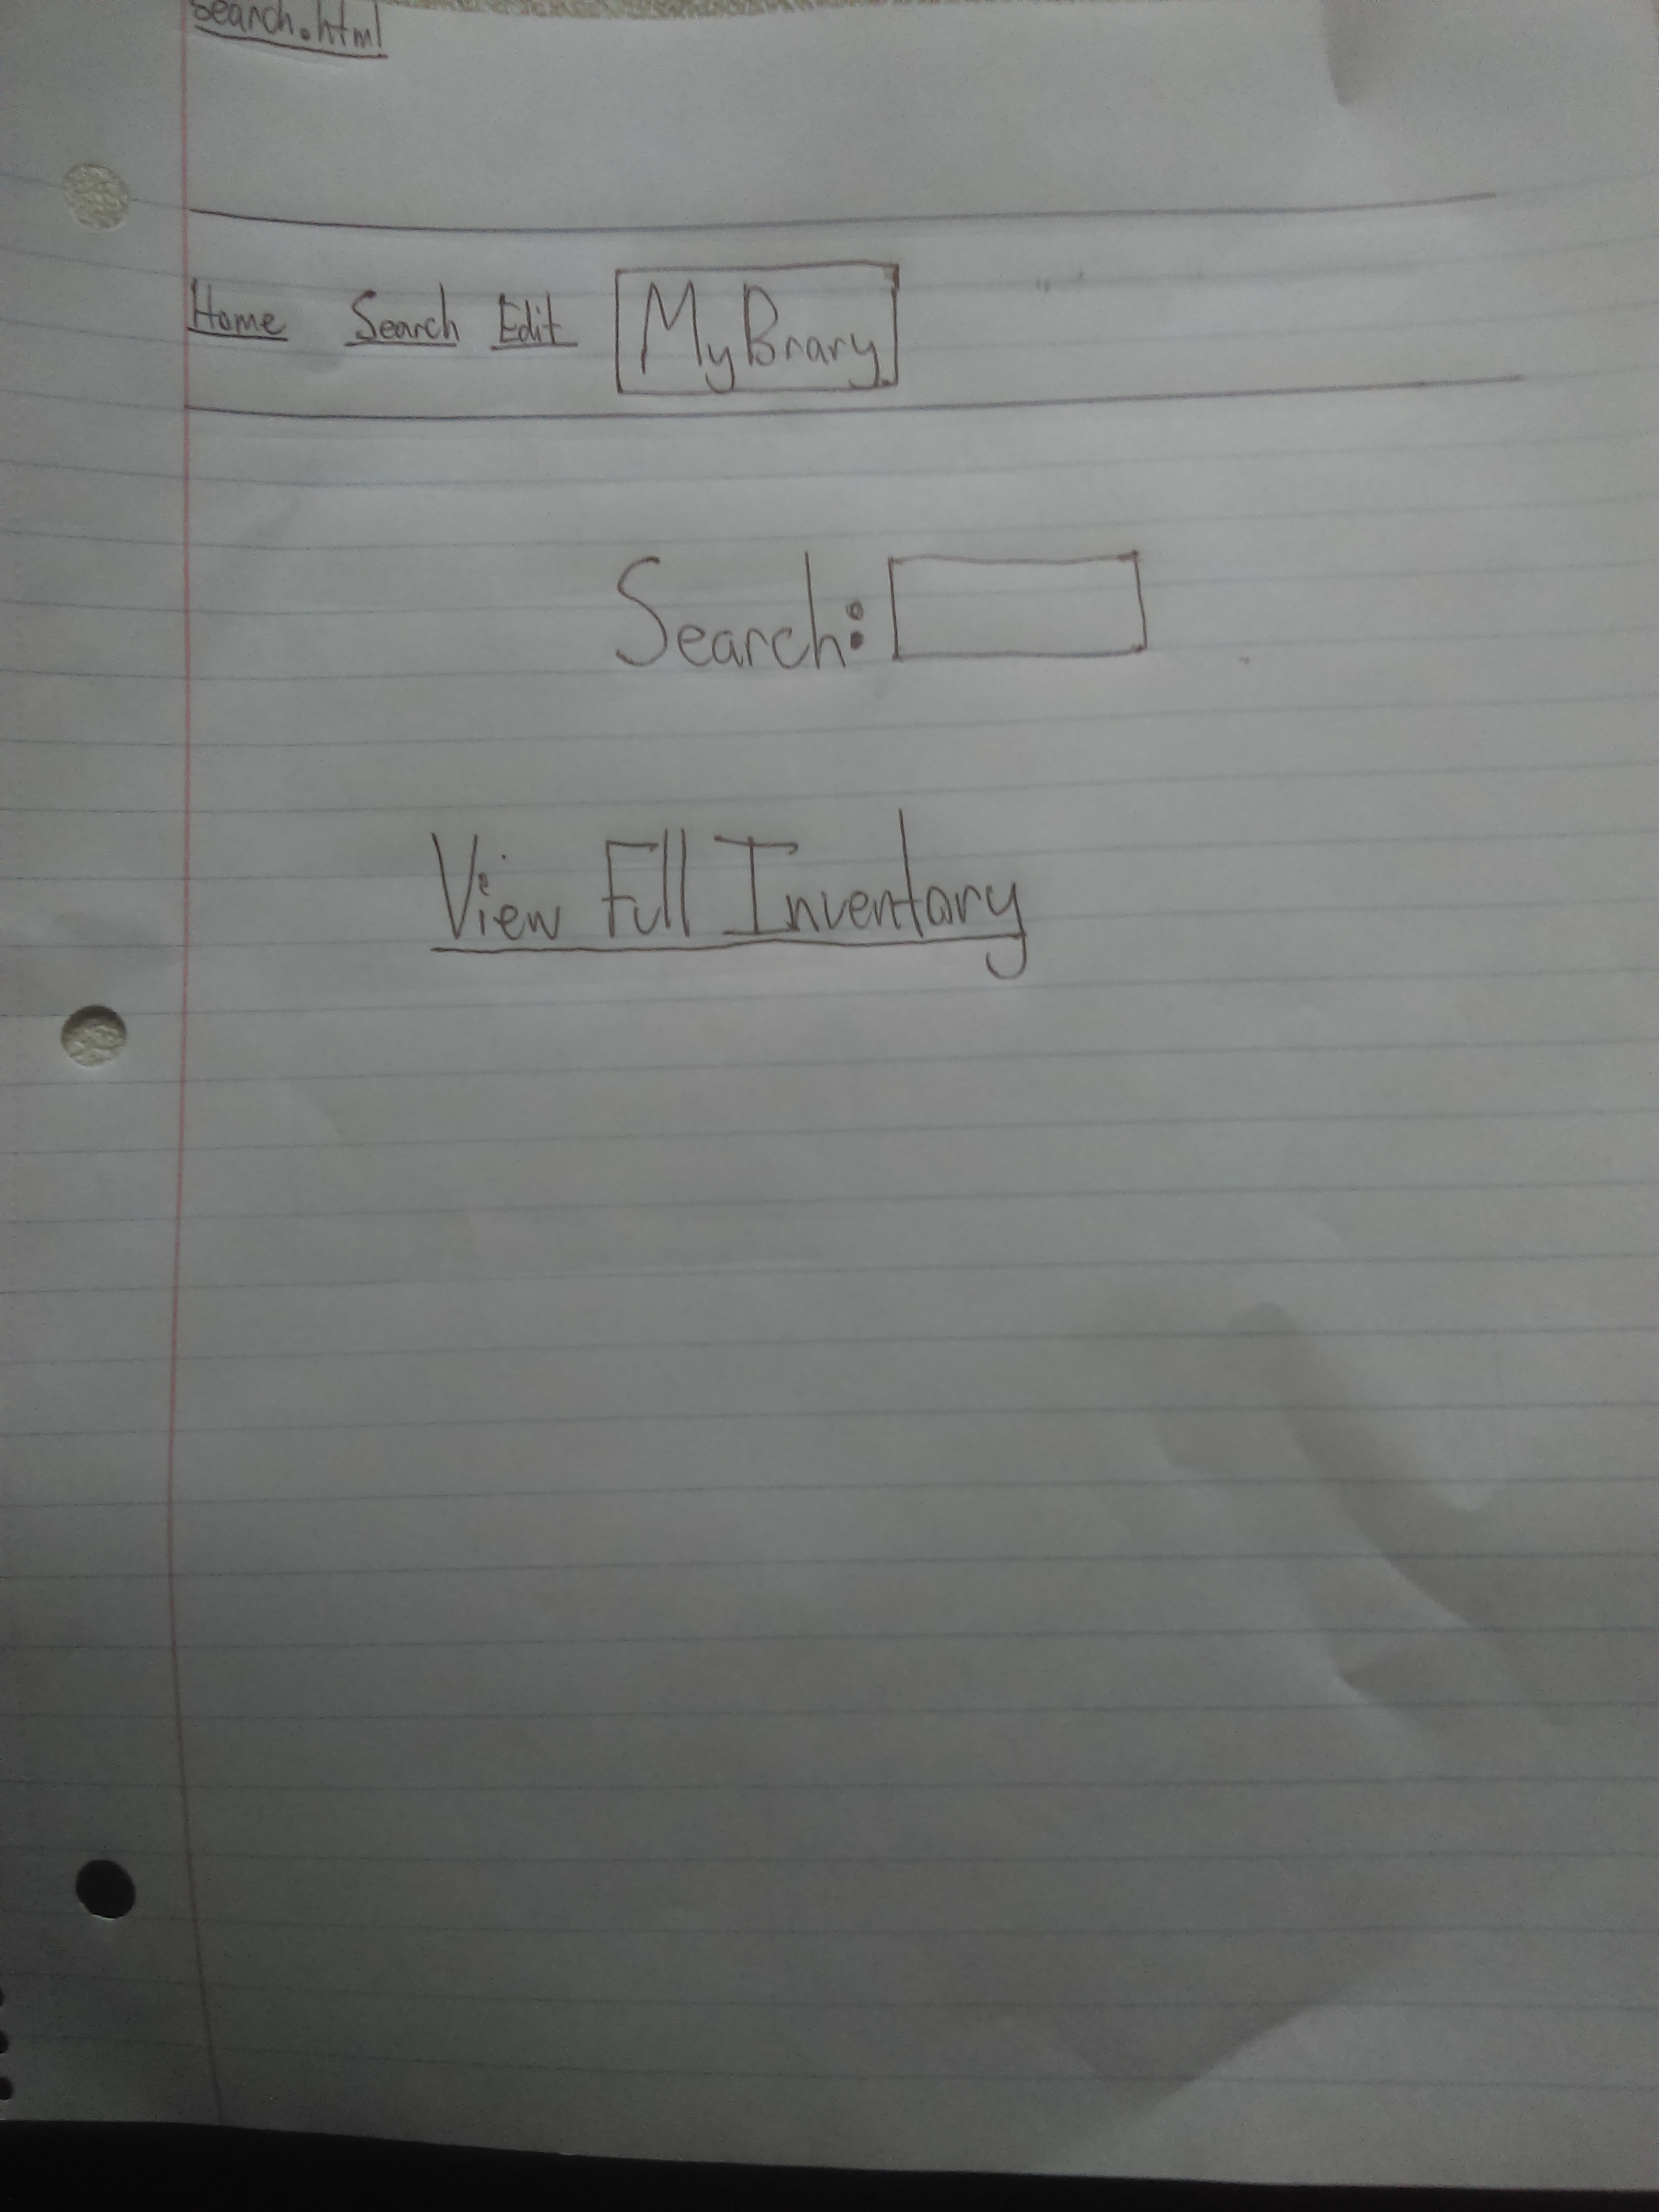 search.html
Home Search Edit MyBrary
Search:
View Full Inventory